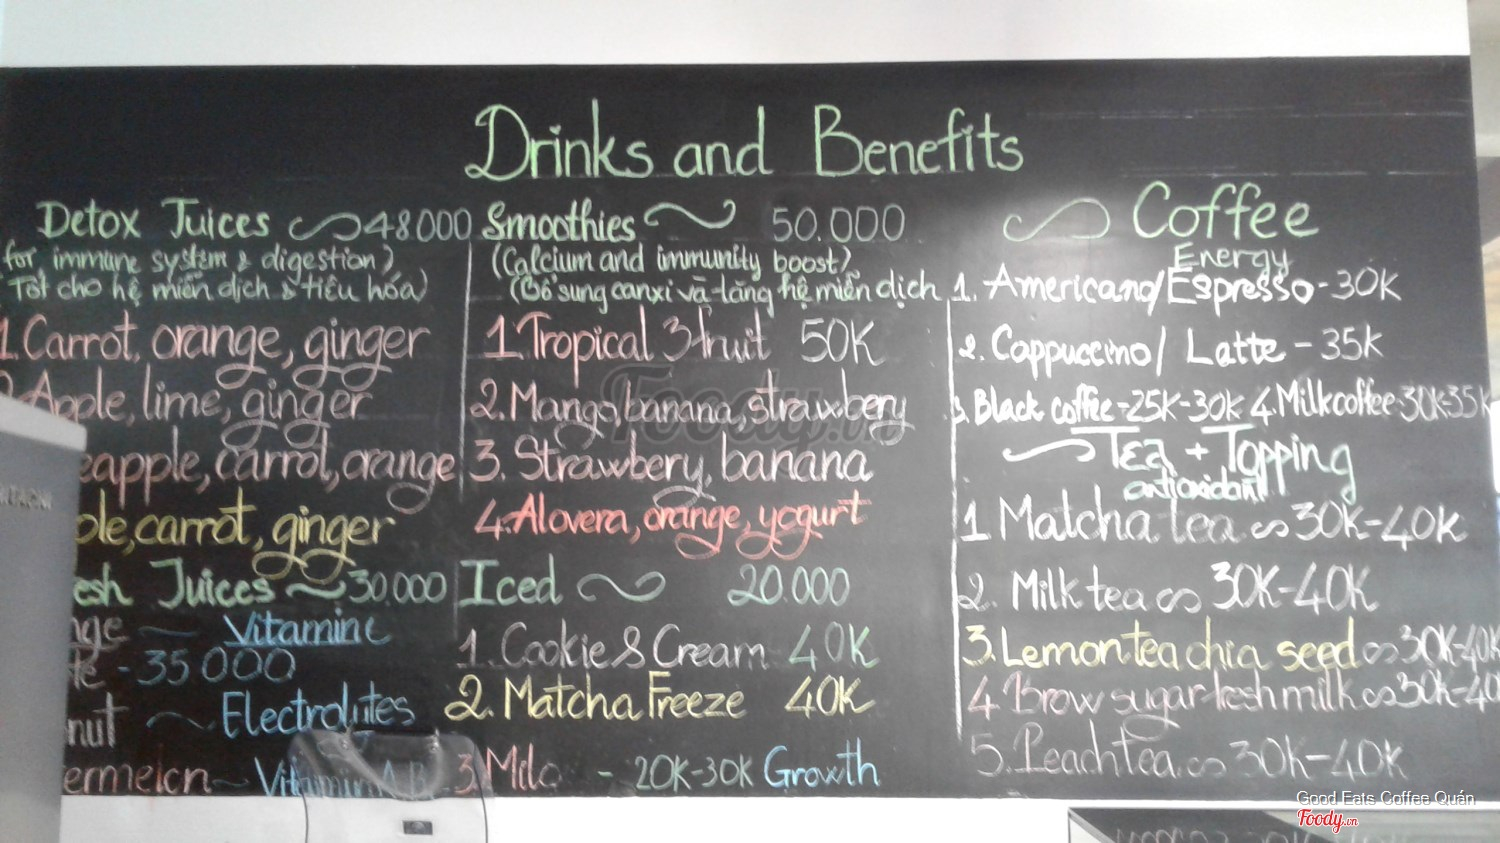 Drinks and Benefits
Detox Juices 48000
for immune system & digestion)
Tốt cho hệ miễn dịch & tiêu hóa)
1. Carrot, orange, ginger
Apple, lime, ginger
eapple, carrot, orange
ple, carrot, ginger
esh Juices ~ 30.000
nge — Vitamine
te - 35000
nut ~ Electrolytes
ermelon ~ Vitamin A, B
Smoothies 50.000
(Calcium and immunity boost)
(Bổ sung canxi và tăng hệ miễn dịch
1. Tropical 3 fruit 50K
2. Mango, banana, strawbery
3. Strawbery, banana
4. Alovera, orange, yogurt
Iced ~ 20.000
1. Cookie & Cream 40K
2. Matcha Freeze 40K
3. Milo - 20K-30K Growth
Coffee
Energy
1. Americano/Espresso - 30K
2. Cappuccino/ Latte - 35K
3. Black coffee - 25K-30K 4. Milk coffee - 30K-35K
Tea + Topping
antioxidant
1 Matcha tea ∽ 30K-40K
2. Milk tea ∽ 30K-40K
3. Lemon tea chia seed ∽ 30K-40K
4 Brow sugar fresh milk ∽ 30K-40
5. Peach tea ∽ 30K-40K
Foody.vn
Good Eats Coffee Quán
Foody.vn